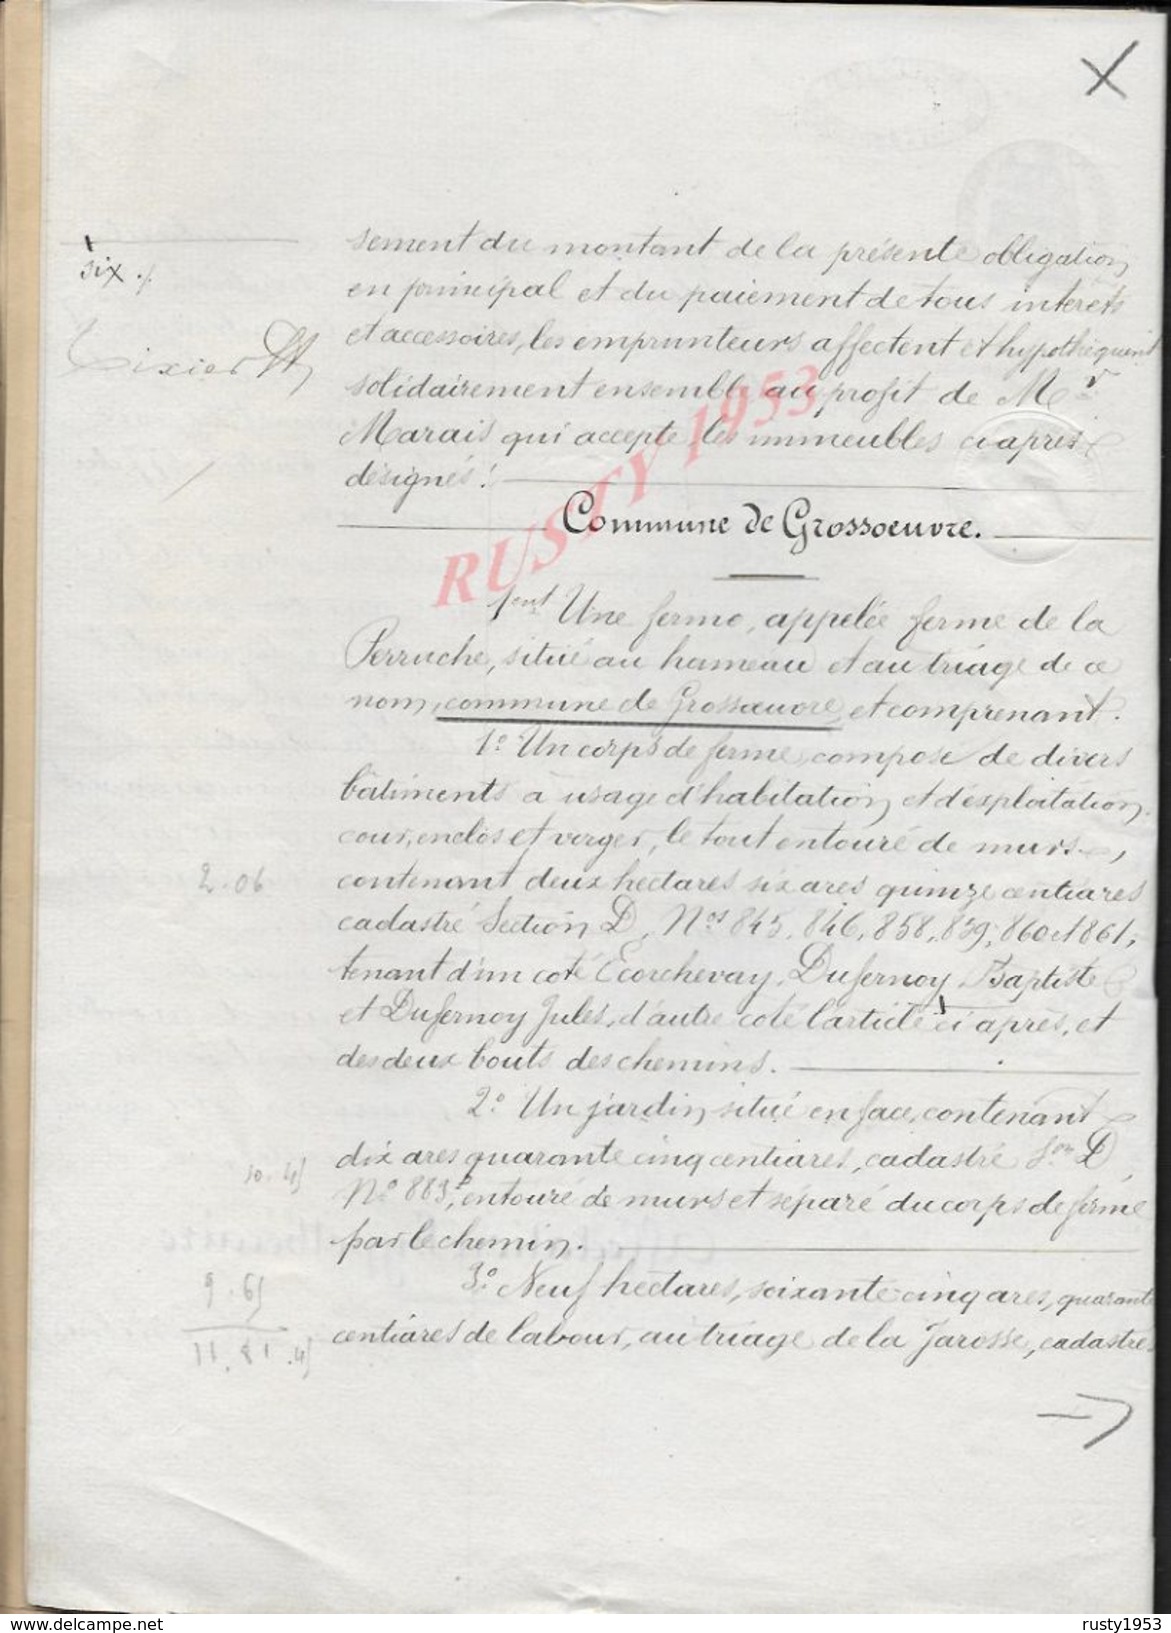 sement du montant de la présente obligation
en principal et du paiement de tous intérêts
et accessoires, les emprunteurs affectent et hypothèquent
solidairement ensemble au profit de Mr
Marais qui accepte les immeubles ci après
désignés:
Commune de Grossoeuvre.
1ent Une ferme, appelée ferme de la
Perruche, situé au hameau et au triage de ce
nom, commune de Grossoeuvre, et comprenant.
1° Un corps de ferme, composé de divers
bâtiments à usage d'habitation, et d'exploitation,
cour, enclos et verger, le tout entouré de murs,
contenant deux hectares six ares quinze centiares
cadastré Section D, Nos 845, 846, 858, 859, 860 et 861,
tenant d'un coté Ecorchevay, Dufernoy Baptiste
et Dufernoy Jules, d'autre coté l'article ci après, et
des deux bouts des chemins.
2° Un jardin, situé en face, contenant
dix ares quarante cinq centiares, cadastré Son D
No 883, entouré de murs et séparé du corps de ferme
par le chemin.
3° Neuf hectares, soixante-cinq ares, quarante
centiares de labour, au triage de la Jarosse, cadastrés
six
Tixier
2.06
10.45
9.65
11.81.45
RUSTY 1953
www.delcampe.net
rusty1953